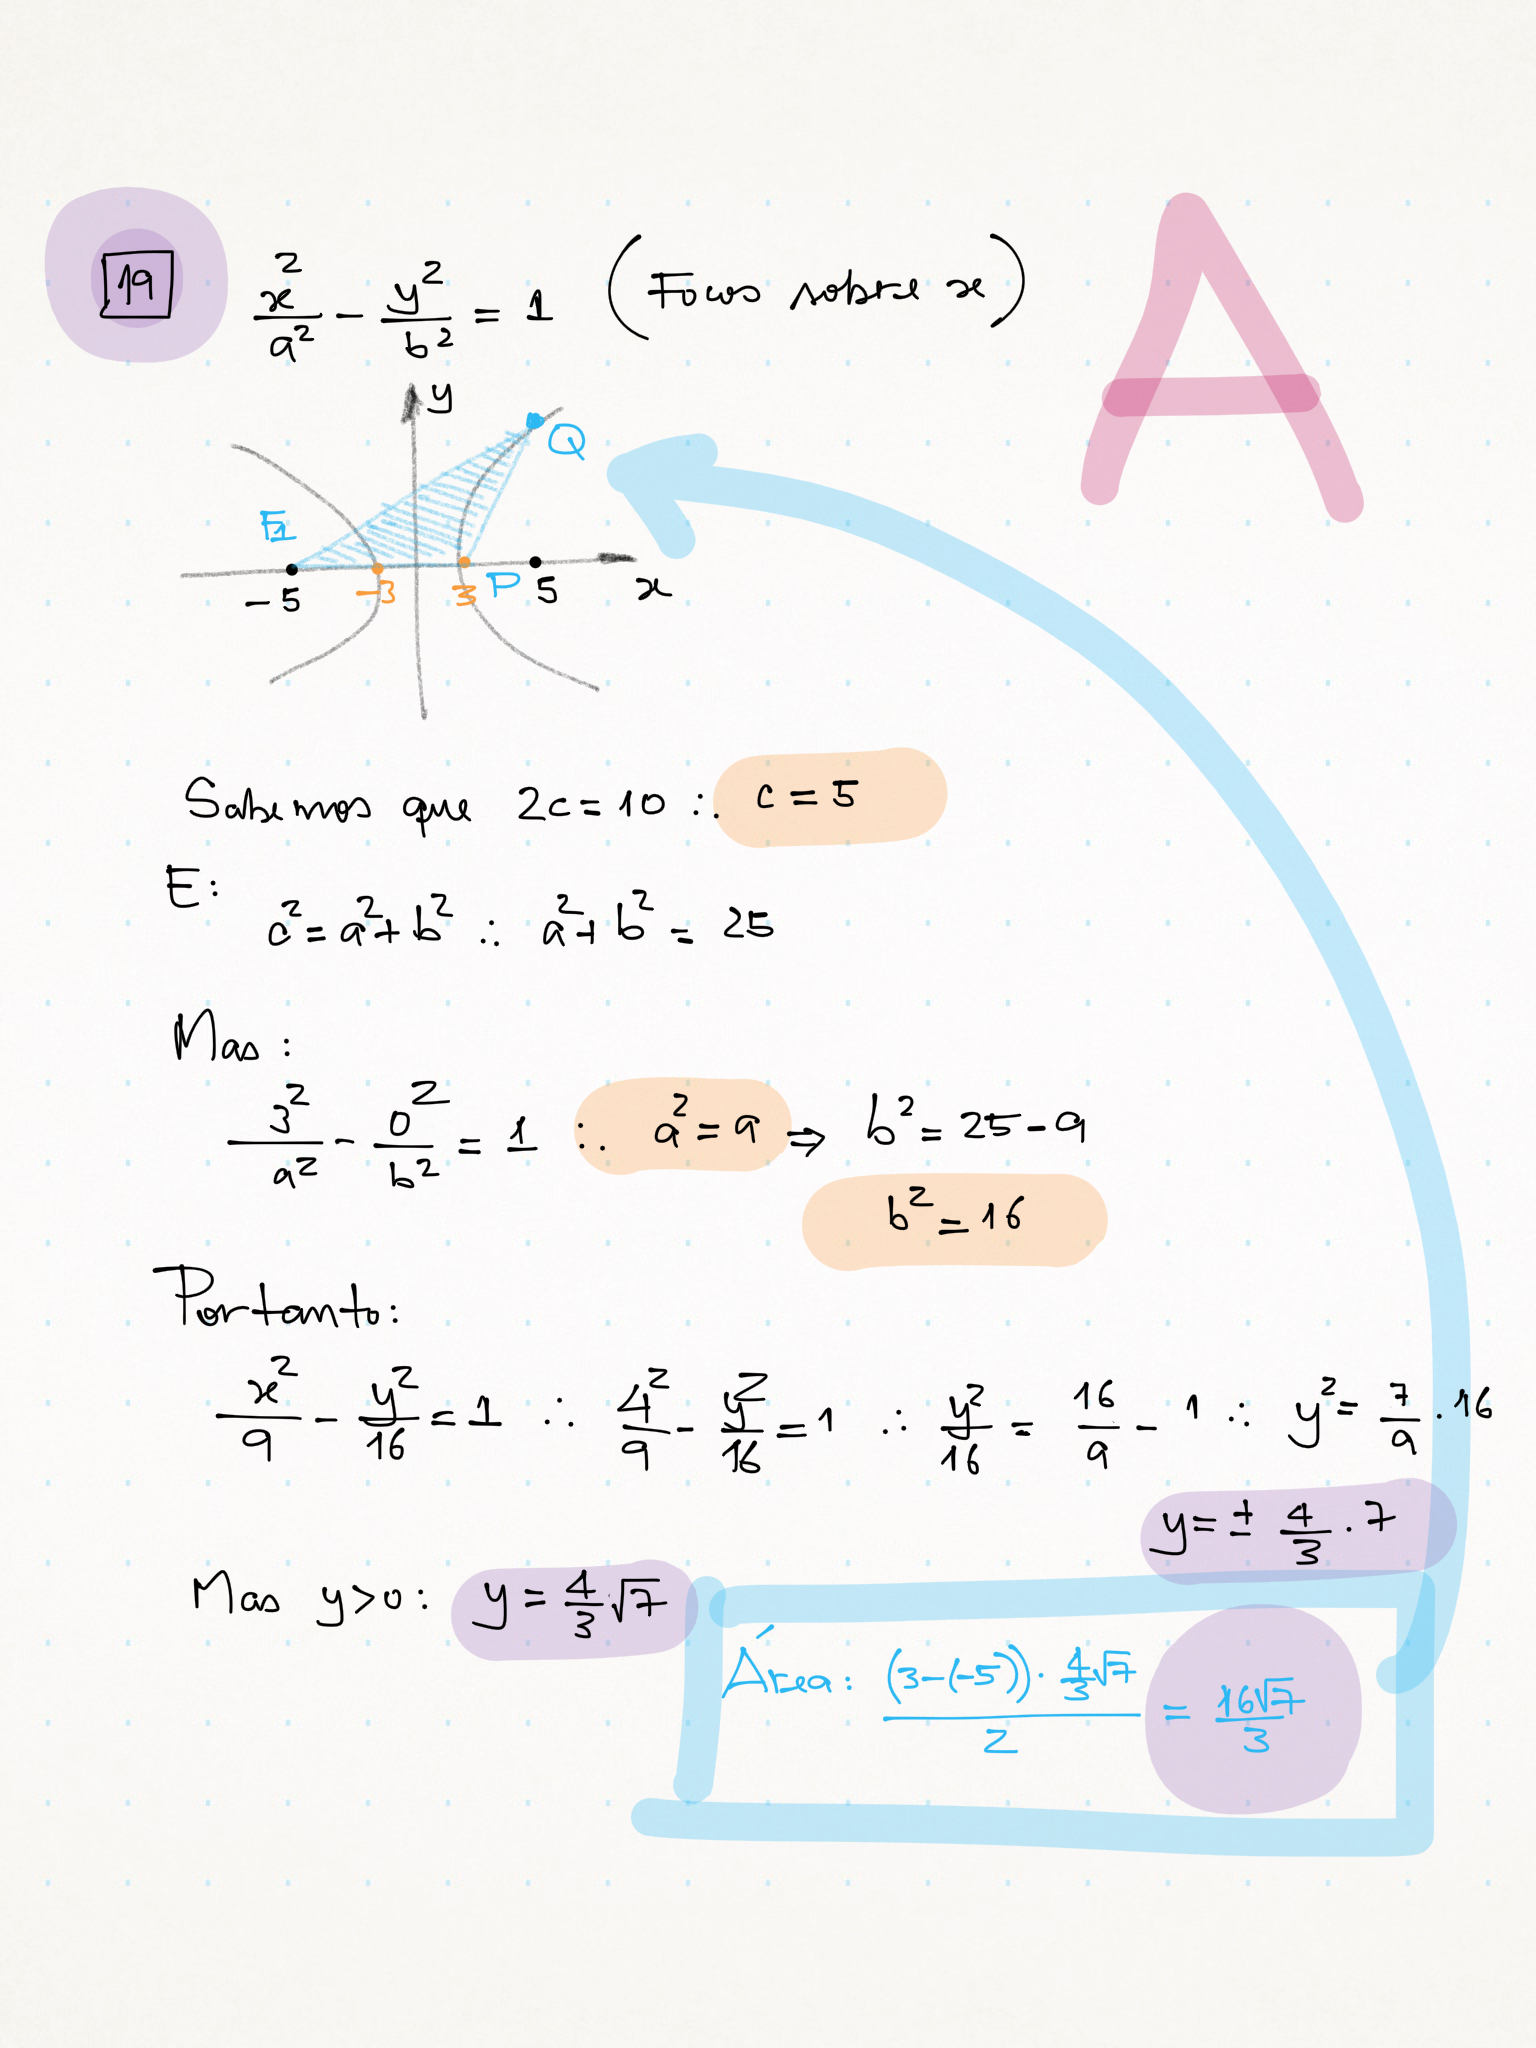 19 x²/a² - y²/b² = 1 (Focos sobre x)
A
y
Q
F1
-5 -3 3 P 5 x
Sabemos que 2c = 10 ∴ c = 5
E:
c² = a² + b² ∴ a² + b² = 25
Mas:
3²/a² - 0²/b² = 1 ∴ a² = 9 ⇒ b² = 25 - 9
b² = 16
Portanto:
x²/9 - y²/16 = 1 ∴ 4²/9 - y²/16 = 1 ∴ y²/16 = 16/9 - 1 ∴ y² = 7/9 . 16
y = ± 4/3 . 7
Mas y > 0: y = 4/3 . √7
Área: (3-(-5)) . 4/3 √7 / 2 = 16√7/3